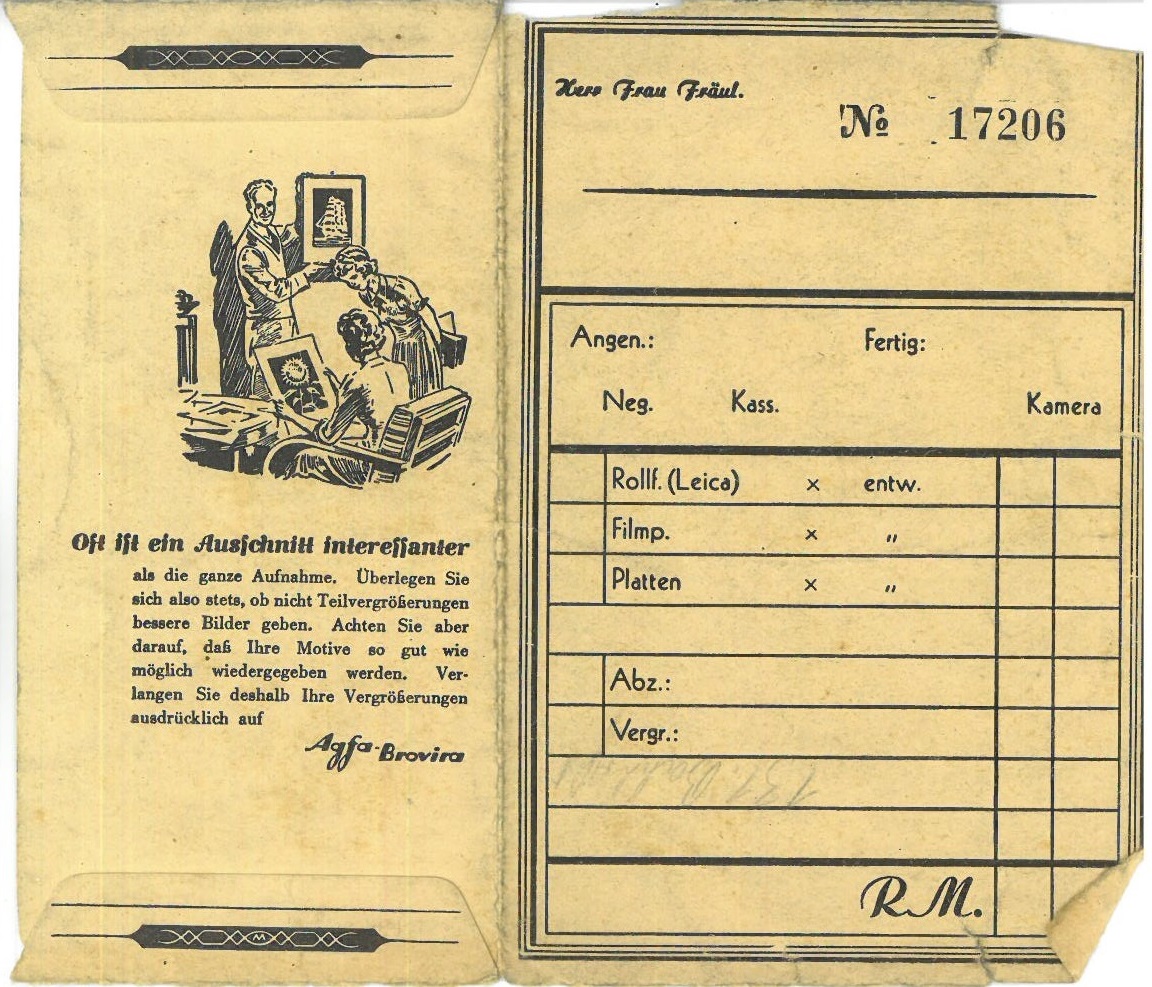 Oft iſt ein Ausſchnitt intereſſanter
als die ganze Aufnahme. Überlegen Sie
sich also stets, ob nicht Teilvergrößerungen
bessere Bilder geben. Achten Sie aber
darauf, daß Ihre Motive so gut wie
möglich wiedergegeben werden. Ver-
langen Sie deshalb Ihre Vergrößerungen
ausdrücklich auf
Agfa-Brovira
M
Herr Frau Fräul.
No 17206
Angen.: Fertig:
Neg. Kass. Kamera
Rollf. (Leica) x entw.
Filmp. x „
Platten x „
Abz.:
Vergr.:
R.M.